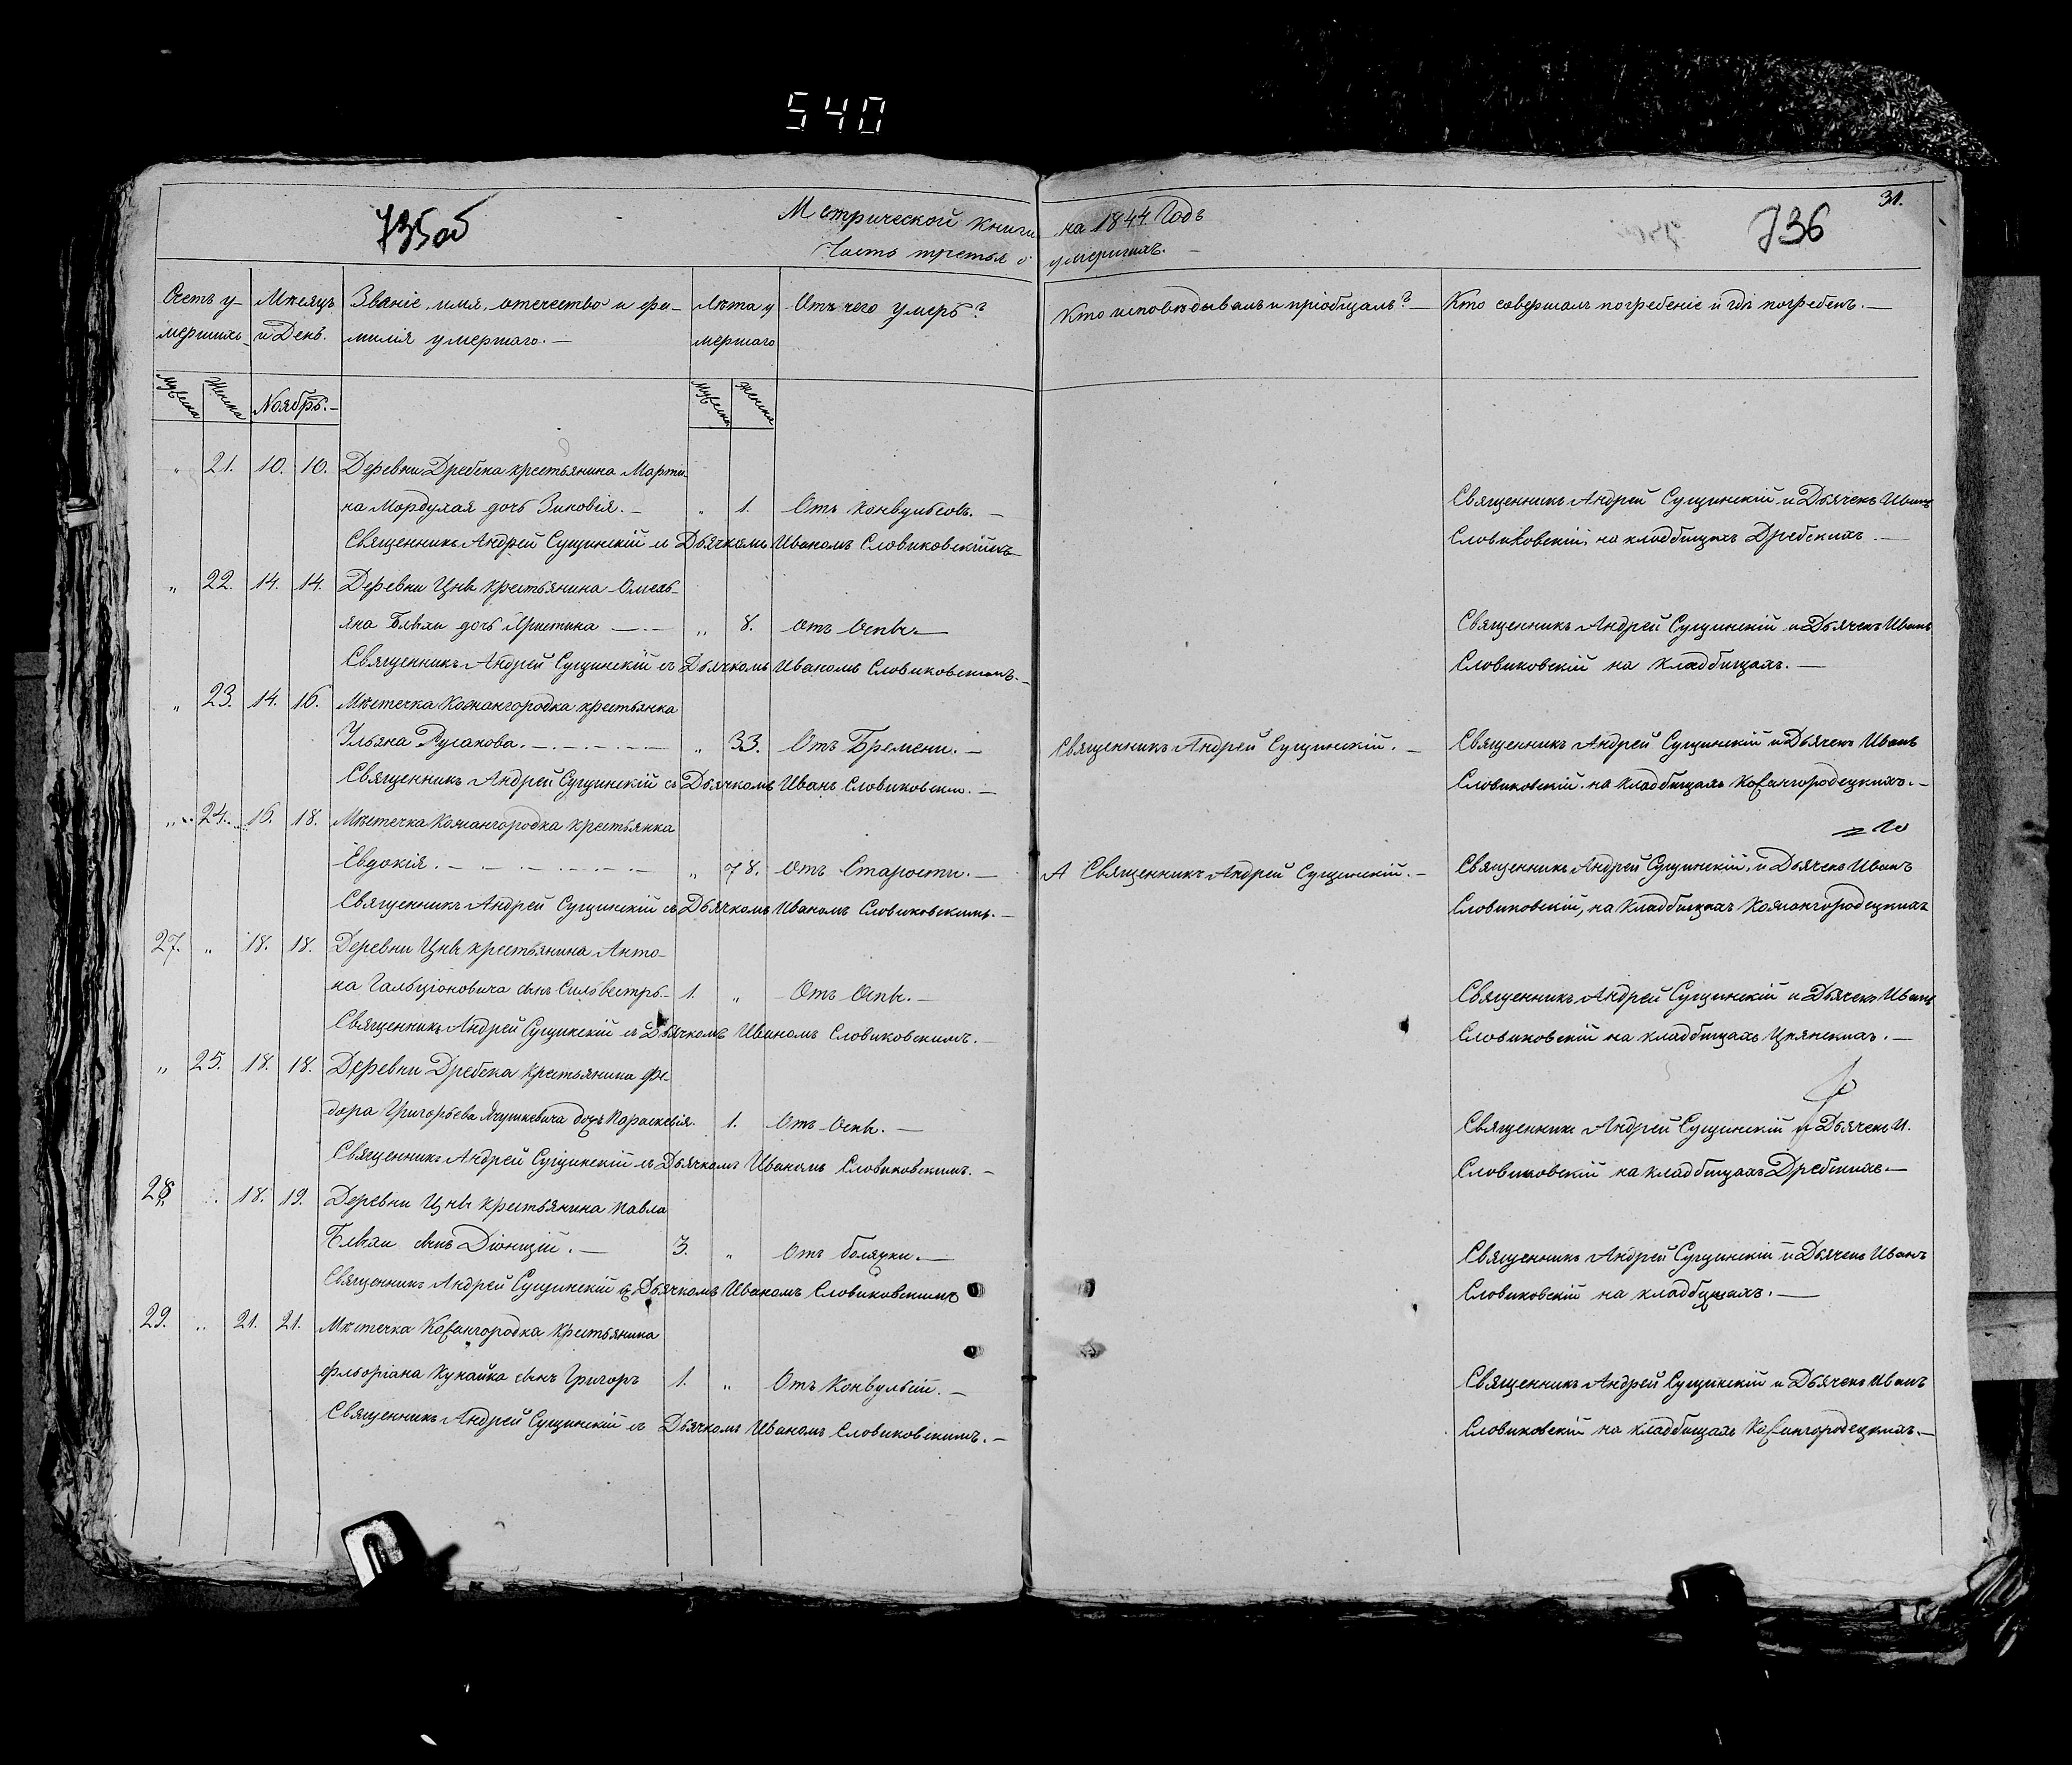 540
735об
Метрической книги на 1844 Годъ
31.
736
Часть третья о умершихъ.
Счетъ у- Мѣсяцъ Званіе, имя, отечество и фа- Лѣта у Отъ чего умеръ? Кто исповѣдывалъ и пріобщалъ? Кто совершалъ погребеніе и гдѣ погребенъ.
мершихъ и День. милія умершаго. мершаго
Мужеска Женска Ноябрь. Мужеска Женска
" 21. 10. 10. Деревни Дребска крестьянина Марти-
на Мордухая дочь Зиновія. " 1. Отъ Конвульсовъ. Священникъ Андрей Сущинскій и Дьячекъ Иванъ
Священникъ Андрей Сущинскій съ Дьячкомъ Иваномъ Словиковскимъ Словиковскій, на кладбищахъ Дребскихъ
" 22. 14. 14. Деревни Цны крестьянина Омель-
яна Бляхи дочь Христина " 8. отъ Оспы Священникъ Андрей Сущинскій и Дьячекъ Иванъ
Священникъ Андрей Сущинскій съ Дьячкомъ Иваномъ Словиковскимъ. Словиковскій на кладбищахъ.
" 23. 14. 16. Мѣстечка Кожангородка крестьянка
Ульяна Русакова. " 33. Отъ Бремени. Священникъ Андрей Сущинскій. Священникъ Андрей Сущинскій и Дьячекъ Иванъ
Священникъ Андрей Сущинскій съ Дьячкомъ Иванъ Словиковскій. Словиковскій на кладбищахъ Кожангородецкихъ.
" 24. 16. 18. Мѣстечка Кожангородка крестьянка
Евдокія. " 78. Отъ Старости. А Священникъ Андрей Сущинскій. Священникъ Андрей Сущинскій, и Дьячекъ Иванъ
Священникъ Андрей Сущинскій съ Дьячкомъ Иваномъ Словиковскимъ. Словиковскій, на кладбищахъ Кожангородецкихъ
27. " 18. 18. Деревни Цны крестьянина Анто-
на Гальціоновича сынъ Сильвестръ. 1. " Отъ Оспы. Священникъ Андрей Сущинскій и Дьячекъ Иванъ
Священникъ Андрей Сущинскій съ Дьячкомъ Иваномъ Словиковскимъ. Словиковскій на кладбищахъ Цнянскихъ.
" 25. 18. 18. Деревни Дребска крестьянина Фе-
дора Григорьева Ячушкевича дочь Параскевія. 1. Отъ Оспы. Священникъ Андрей Сущинскій и Дьячекъ И.
Священникъ Андрей Сущинскій съ Дьячкомъ Иваномъ Словиковскимъ. Словиковскій на кладбищахъ Дребскихъ.
28 " 18. 19. Деревни Цны крестьянина Павла
Бляхи сынъ Діонизій. 3. " Отъ болячки. Священникъ Андрей Сущинскій и Дьячекъ Иванъ
Священникъ Андрей Сущинскій съ Дьячкомъ Иваномъ Словиковскимъ Словиковскій на кладбищахъ.
29. " 21. 21. Мѣстечка Кожангородка крестьянина
Фльоріана Кукайка сынъ Григоръ 1. " Отъ Конвульсій. Священникъ Андрей Сущинскій и Дьячекъ Иванъ
Священникъ Андрей Сущинскій съ Дьячкомъ Иваномъ Словиковскимъ. Словиковскій на кладбищахъ Кожангородецкихъ.